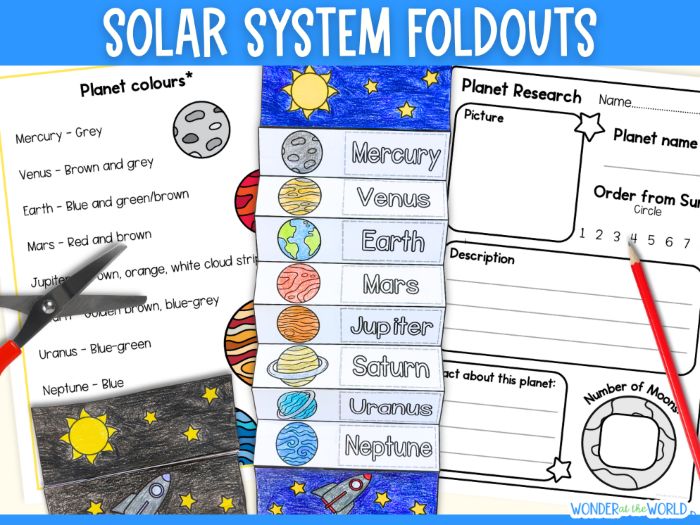 SOLAR SYSTEM FOLDOUTS
Planet colours*
Mercury – Grey
Venus – Brown and grey
Earth – Blue and green/brown
Mars – Red and brown
brown, orange, white cloud
golden brown, blue-grey
Uranus – Blue-green
Neptune – Blue
Mercury
Venus
Earth
Mars
Jupiter
Saturn
Uranus
Neptune
Planet Research Name
Picture
Planet name
Order from Sun
Circle
1 2 3 4 5 6 7
Description
about this planet:
Number of Moons
WONDER at the WORLD